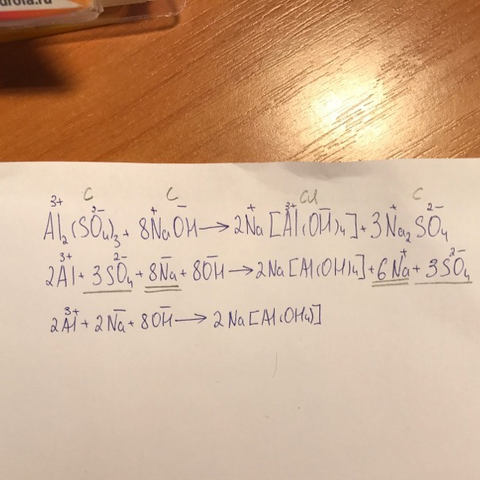 С С Сл С
Al³⁺₂(SO₄²⁻)₃ + 8Na⁺OH⁻ → 2Na⁺[Al³⁺(OH⁻)₄] + 3Na⁺₂SO₄²⁻
2Al³⁺ + 3SO₄²⁻ + 8Na⁻ + 8OH⁻ → 2Na[Al(OH)₄] + 6Na⁺ + 3SO₄²⁻
2Al³⁺ + 2Na⁻ + 8OH⁻ → 2Na[Al(OH₄)]